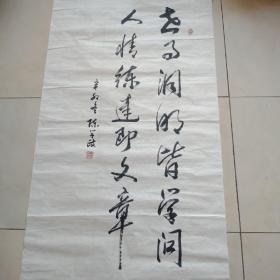 世事洞明皆学问
人情练达即文章
辛卯冬陈